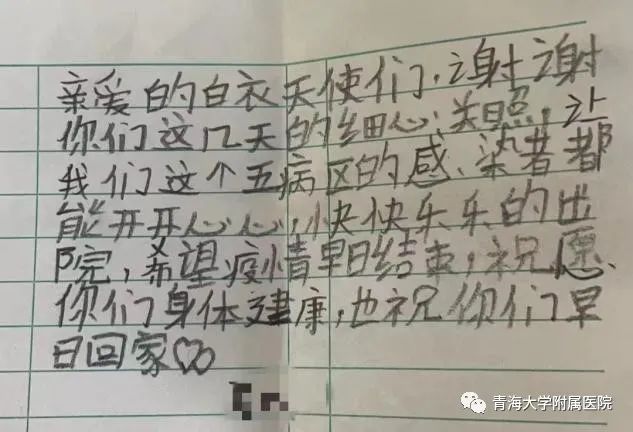 亲爱的白衣天使们，谢谢
你们这几天的细心关照，让
我们这个五病区的感染者都
能开开心心，快快乐乐的出
院，希望疫情早日结束，祝愿
你们身体健康，也祝你们早
日回家
青海大学附属医院